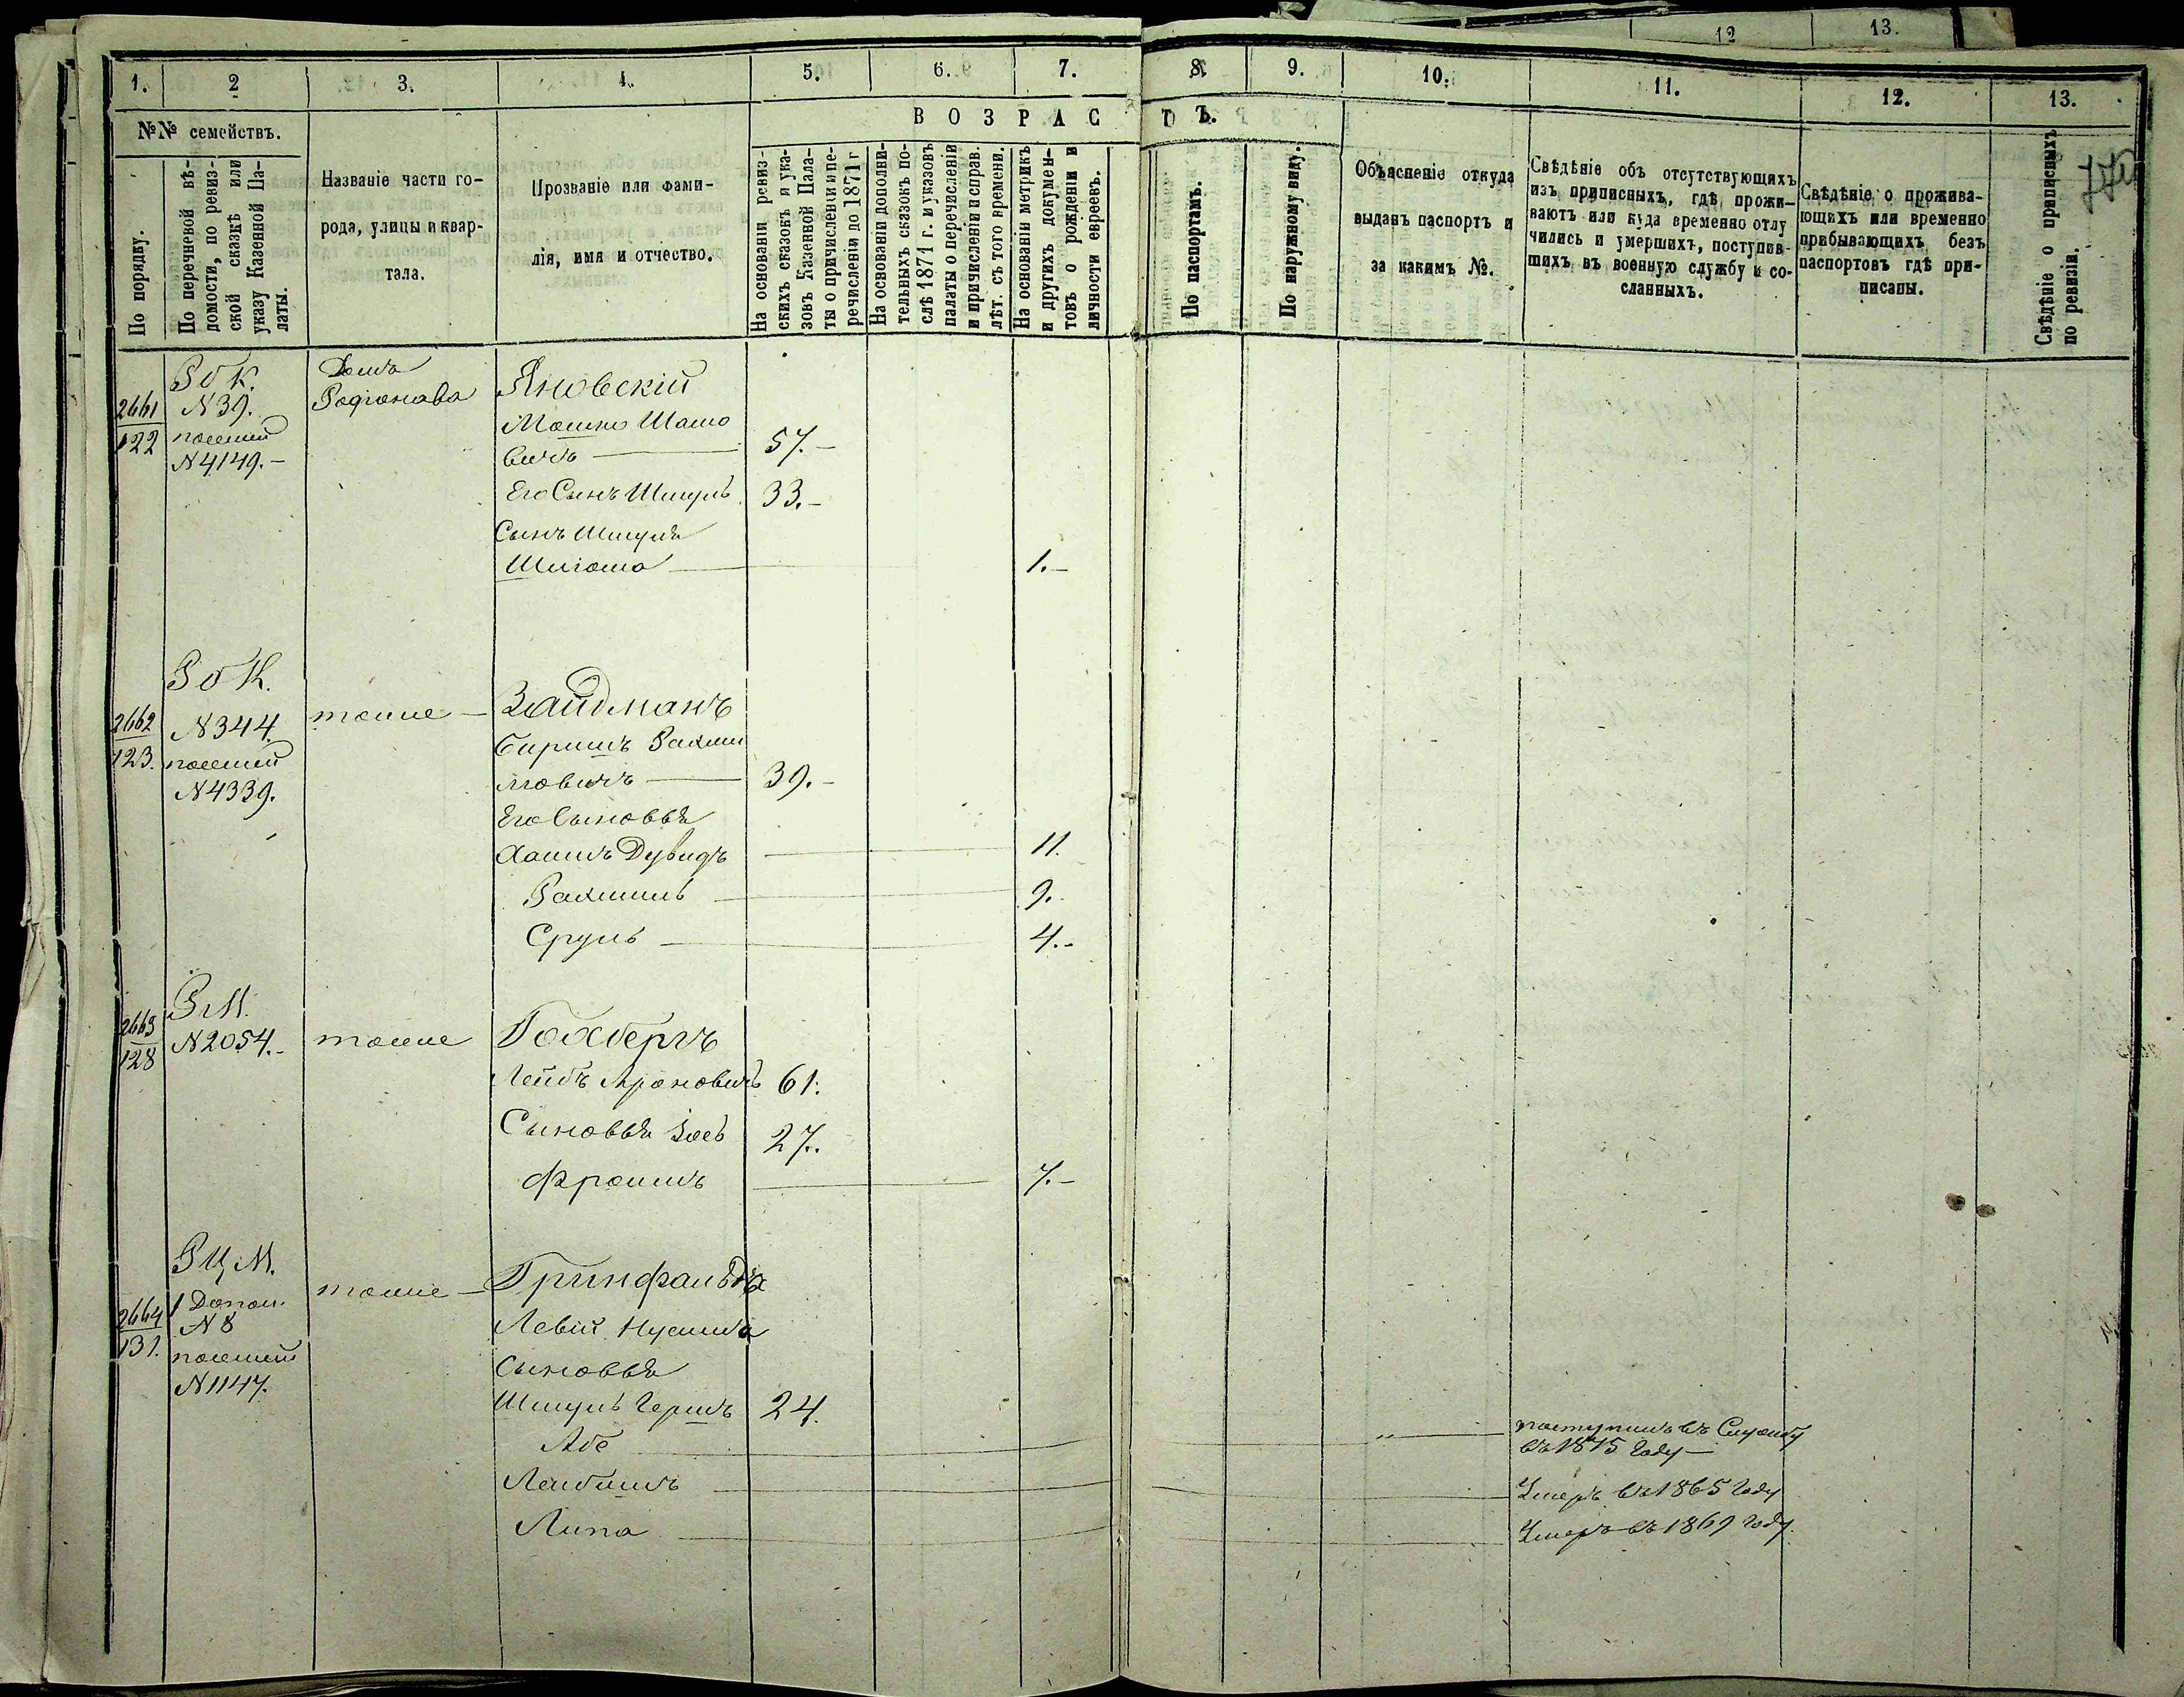 12 13.
1. 2 3. 4. 5. 6. 7. 8. 9. 10. 11. 12. 13.
№№ семействъ.
По порядку.
По перечневой вѣ-
домости, по ревиз-
ской сказкѣ или
указу Казенной Па-
латы.
Названіе части го-
рода, улицы и квар-
тала.
Прозваніе или фами-
лія, имя и отчество.
ВОЗРАСТЪ.
На основаніи ревиз-
скихъ сказокъ и ука-
зовъ Казенной Пала-
ты о причисленіи и пе-
речисленіи до 1871 г
На основаніи дополни-
тельныхъ сказокъ по-
слѣ 1871 г. и указовъ
палаты о перечисленіи
и причисленіи и справ.
лѣт. съ того времени.
На основаніи метрикъ
и другихъ докумен-
товъ о рожденіи и
личности евреевъ.
По паспортамъ.
По наружному виду.
Объясненіе откуда
выданъ паспортъ и
за какимъ №.
Свѣдѣніе объ отсутствующихъ
изъ приписныхъ, гдѣ прожи-
ваютъ или куда временно отлу
чились и умершихъ, поступив-
шихъ въ военную службу и со-
сланныхъ.
Свѣдѣніе о прожива-
ющихъ или временно
прибывающихъ безъ
паспортовъ гдѣ при-
писаны.
Свѣдѣніе о приписныхъ
по ревизіи.
2661
122
N 39.
N 4149.-
Домъ
Родіонова
Яновскій
Мошко Шмо
вичъ 57.-
Его Сынъ Шмуль 33.-
Сынъ Шмуля
1.-
2662
123.
N 344.
N 4339.
тоже
Зайдманъ
Беришъ Рахми
лювичъ 39.-
Его Сыновья
Хаимъ Дувидъ 11.
Рахмиль 9.
Сруль 4.-
2663
128
Р М.
N 2054.-
тоже
Гохбергъ
Лейбъ Ароновичъ 61.
Сыновья Іосъ 27.
Фроимъ 7.-
2664
131.
Р Ц М.
1 Допол.
N 8
N 1147.
тоже
Гринфельдъ
Левій Нусима
Сыновья
Шмуль Гершъ 24.
Абе поступилъ въ Службу
въ 1875 году
Лейбишъ Умеръ въ 1865 году
Липа Умеръ въ 1869 году.